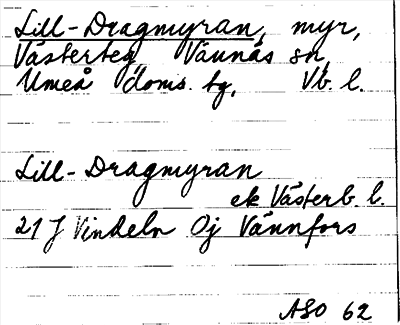 Lill-Dragmyran, myr,
Västerteg, Vännäs sn,
Umeå doms. tg, Vb. l.
Lill-Dragmyran
ek Västerb. l.
21 J Vindeln Oj Vännfors
ASO 62